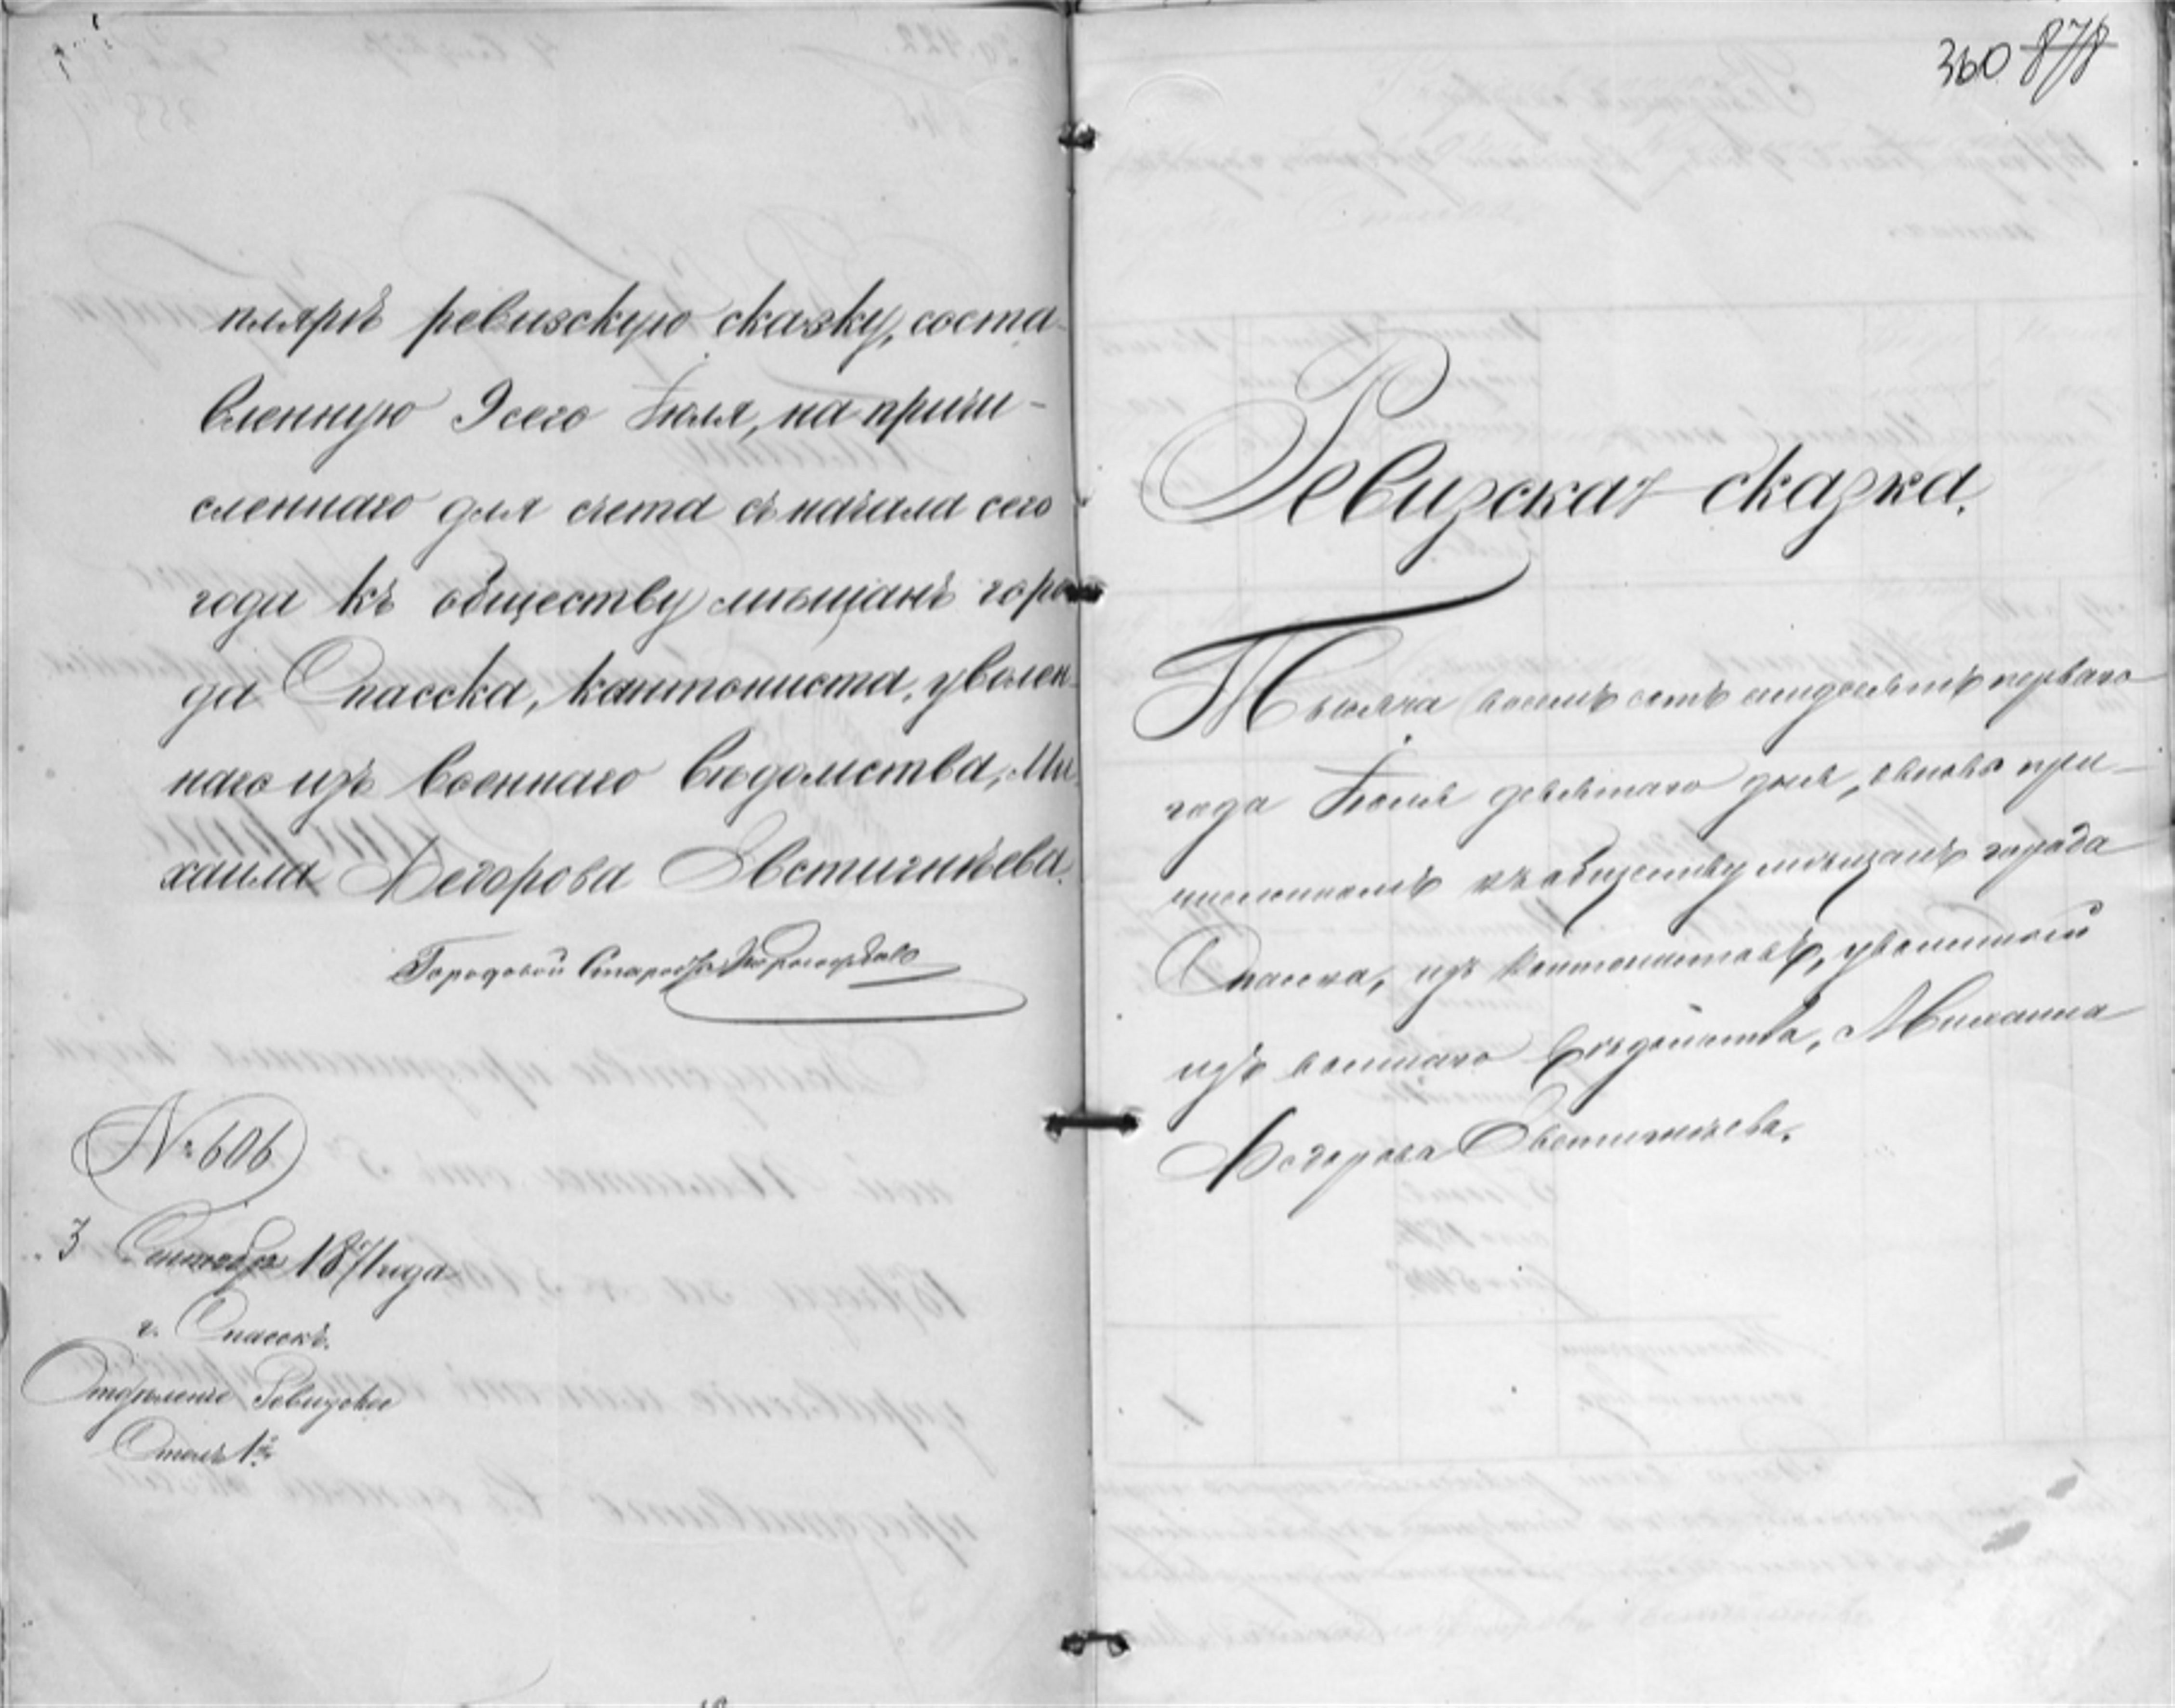 плярѣ ревизскую сказку, соста-
вленную 9 сего Іюля, на причи-
сленнаго для счета съ начала сего
года къ обществу мѣщанъ горо-
да Спасска, кантониста, уволен-
наго изъ военнаго вѣдомства, Ми-
хаила Ѳедорова Евстигнѣева.
Городовой Староста
№ 606
3 Сентября 1871 года
г. Спасскъ.
Отдѣленіе Ревизское
Столъ 1й
360 878
Ревизская сказка.
Тысяча восемь сотъ семдесятъ перваго
года Іюля девятаго дня, вновь при-
численномъ къ обществу мѣщанъ города
Спасска, изъ кантонистовъ, уволенной
изъ военнаго вѣдомства, Михаила
Ѳедорова Евстигнѣева.